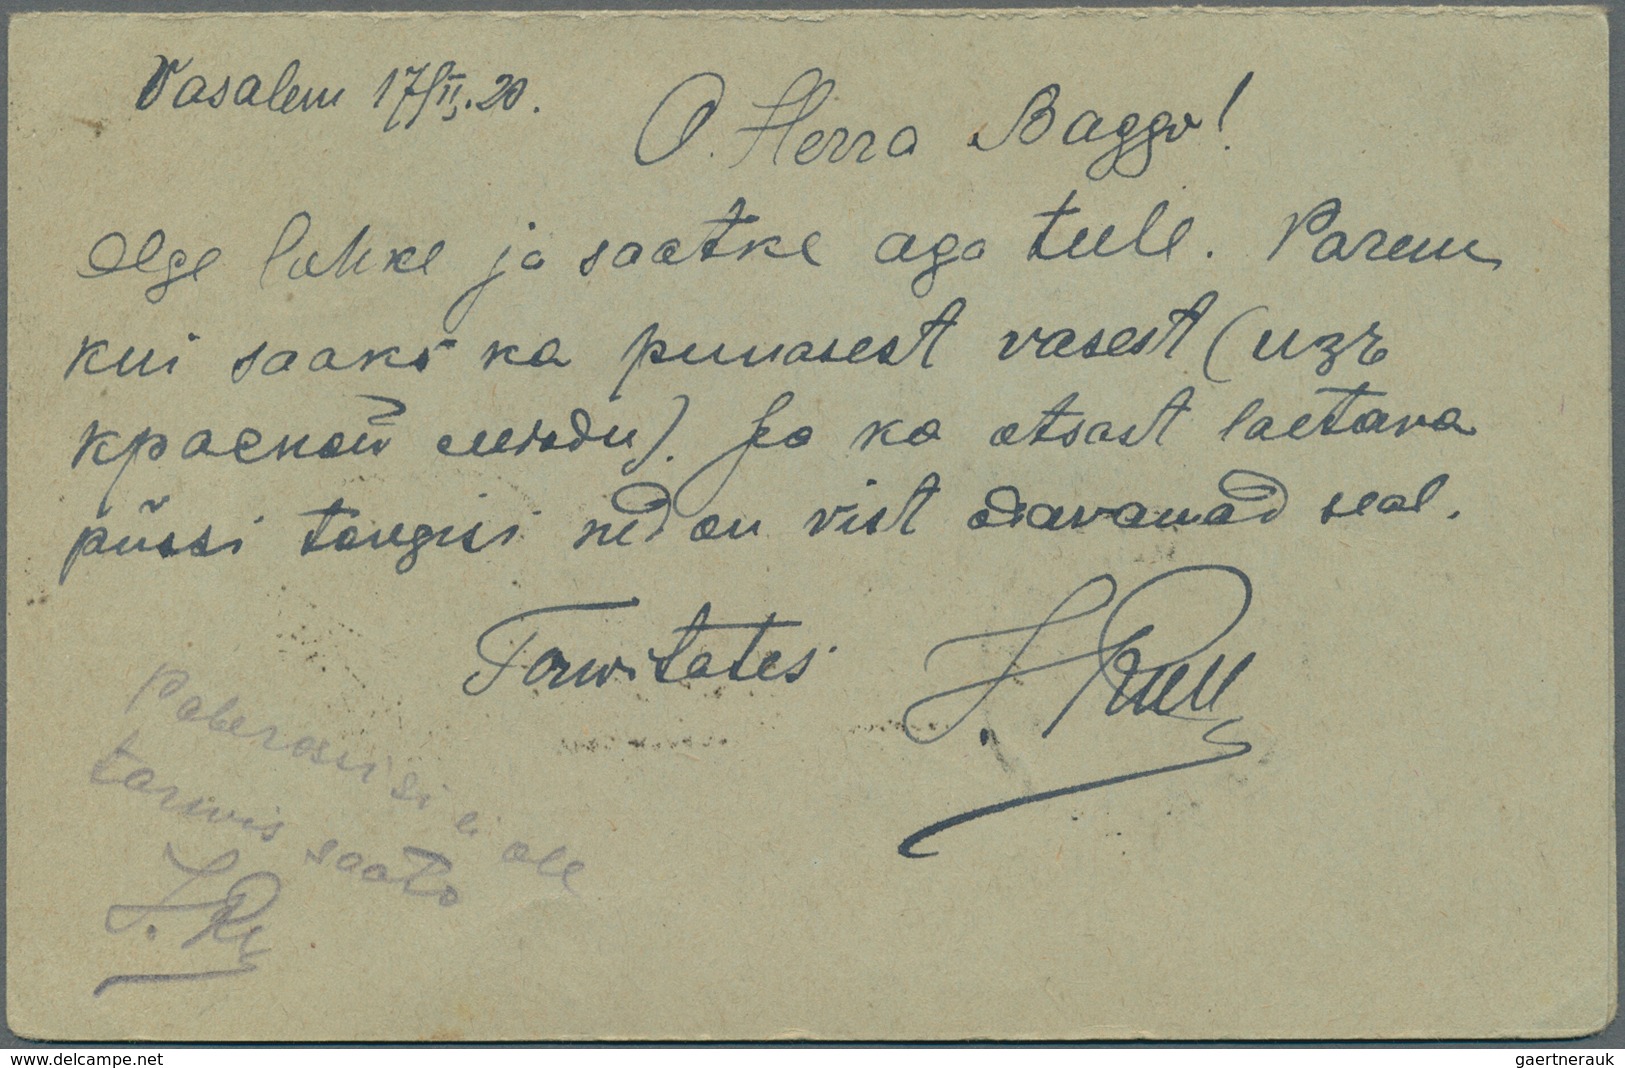 Vasalem 17/II.20.
O. Herra Baggo!
Olge lahke ja saatke aga tule. Parem
kui saaks ka punasest vasest (изъ
красной меди). Ja ka otsast laetava
püssi tongisi ned on vist odavamad seal.
Terwitates
J.
Paberossisi ei ole
tarwis saata
J.
gaertnerauk
delcampe.net